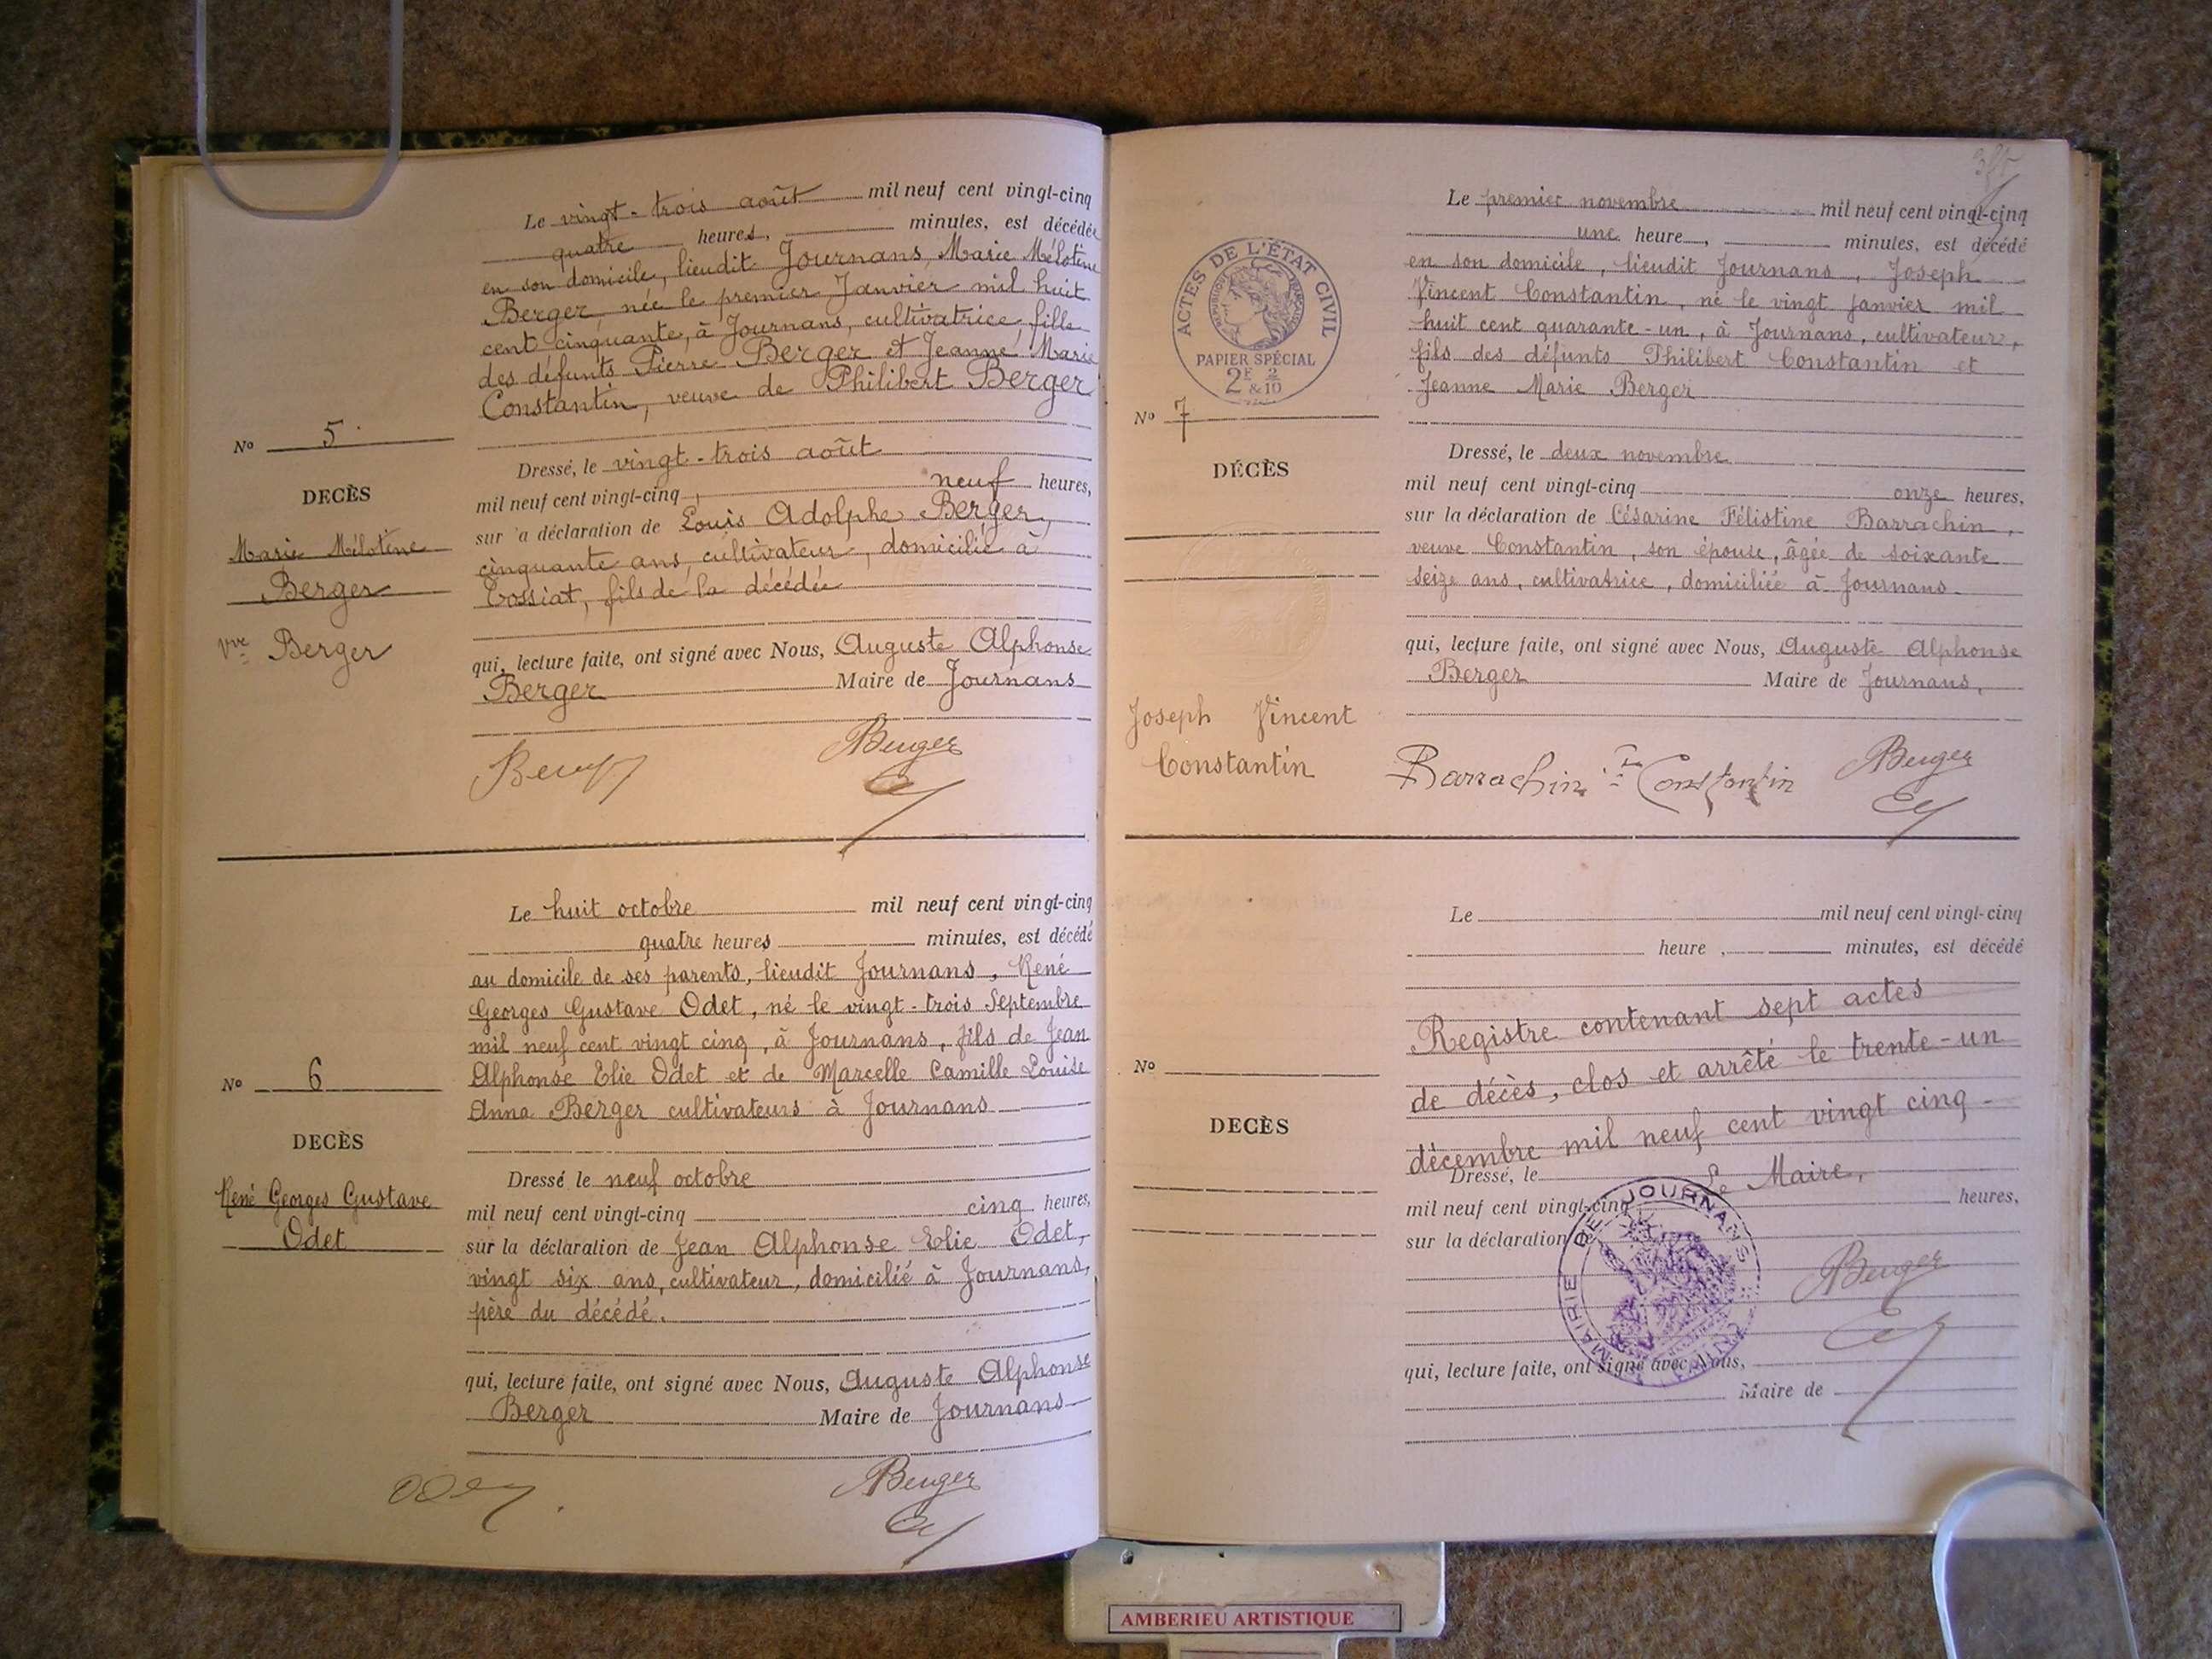 Le vingt-trois août mil neuf cent vingt-cinq
quatre heures, minutes, est décédée
en son domicile, lieudit Journans, Marie Mélotine
Berger, née le premier Janvier mil huit
cent cinquante, à Journans, cultivatrice, fille
des défunts Pierre Berger et Jeanne Marie
Constantin, veuve de Philibert Berger
No 5
DECÈS
Marie Mélotine
Berger
vve Berger
Dressé, le vingt-trois août
mil neuf cent vingt-cinq, neuf heures,
sur a déclaration de Louis Adolphe Berger,
cinquante ans, cultivateur, domicilié à
Tossiat, fils de la décédée
qui, lecture faite, ont signé avec Nous, Auguste Alphonse
Berger Maire de Journans
Berger
Le huit octobre mil neuf cent vingt-cinq
quatre heures minutes, est décédé
au domicile de ses parents, lieudit Journans, René
Georges Gustave Odet, né le vingt-trois Septembre
mil neuf cent vingt cinq, à Journans, fils de Jean
Alphonse Elie Odet et de Marcelle Camille Louise
Anna Berger cultivateurs à Journans
No 6
DECÈS
René Georges Gustave
Odet
Dressé le neuf octobre
mil neuf cent vingt-cinq cinq heures,
sur la déclaration de Jean Alphonse Elie Odet,
vingt six ans, cultivateur, domicilié à Journans,
père du décédé.
qui, lecture faite, ont signé avec Nous, Auguste Alphonse
Berger Maire de Journans
Odet Berger
Le premier novembre mil neuf cent vingt-cinq
une heure, minutes, est décédé
en son domicile, lieudit Journans, Joseph
Vincent Constantin, né le vingt janvier mil
huit cent quarante-un, à Journans, cultivateur,
fils des défunts Philibert Constantin et
Jeanne Marie Berger
ACTES DE L'ÉTAT CIVIL
RÉPUBLIQUE FRANÇAISE
PAPIER SPÉCIAL
2F & 2/10
No 7
DÉCÈS
Joseph Vincent
Constantin
Dressé, le deux novembre
mil neuf cent vingt-cinq onze heures,
sur la déclaration de Césarine Félistine Barrachin,
veuve Constantin, son épouse, âgée de soixante
seize ans, cultivatrice, domiciliée à Journans.
qui, lecture faite, ont signé avec Nous, Auguste Alphonse
Berger Maire de Journans,
Barrachin Constantin Berger
Le mil neuf cent vingt-cinq
heure, minutes, est décédé
Registre contenant sept actes
de décès, clos et arrêté le trente-un
décembre mil neuf cent vingt cinq.
No
DECÈS
Dressé, le
Le Maire,
mil neuf cent vingt-cinq heures,
sur la déclaration de
MAIRIE DE JOURNANS
Berger
qui, lecture faite, ont signé avec Nous,
Maire de
AMBERIEU ARTISTIQUE